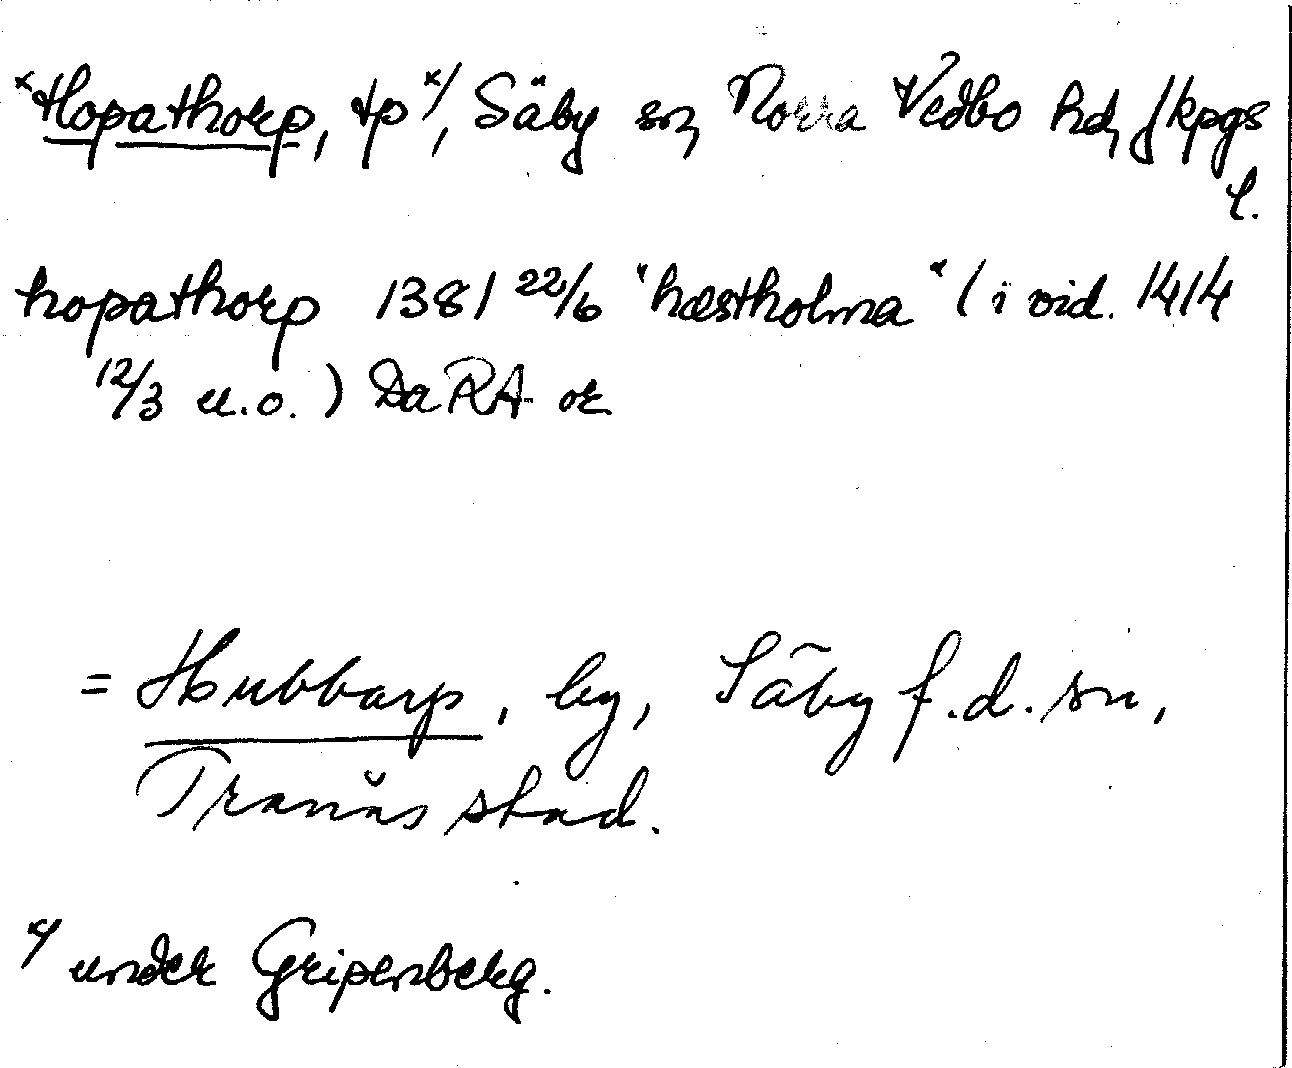 *Hopathorp, tp x/, Säby sn, Norra Vedbo hd, Jkpgs
l.
hopathorp 1381 22/6 "hæstholma" (i vid. 1414
12/3 u.o.) DaRA or
= Hubbarp, by, Säby f.d. sn,
Tranås stad.
x/ under Gripenberg.